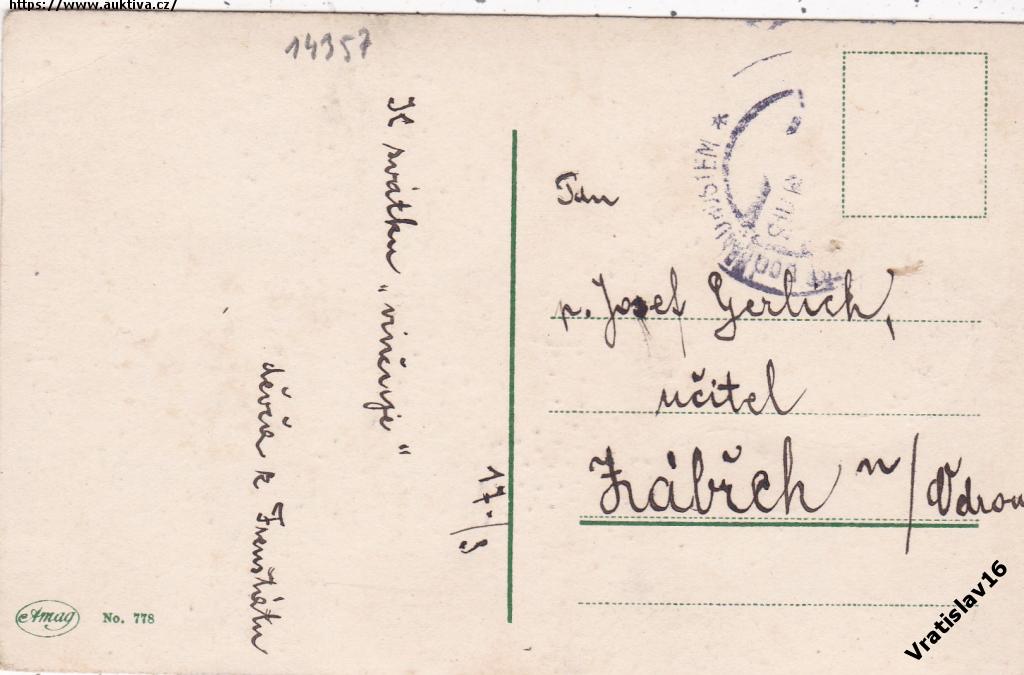 https://www.auktiva.cz/
14357
K svátku
„vinčuje“
děvča z Frenštátu
17./3
Pan
p. Josef Gerlich,
učitel
Zábřeh n/Odrou
Amag
No. 778
Vratislav16